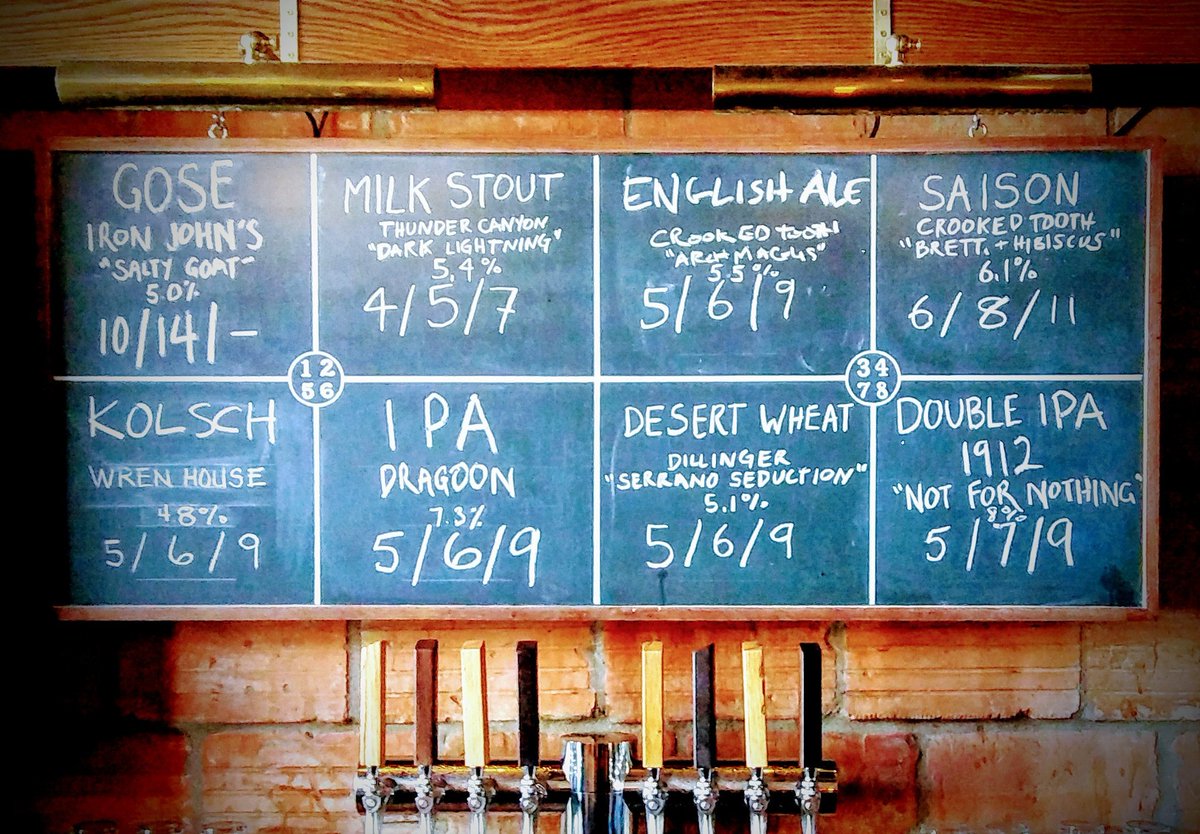 GOSE
IRON JOHN'S
"SALTY GOAT"
5.0%
10/14/-
MILK STOUT
THUNDER CANYON
"DARK LIGHTNING"
5.4%
4/5/7
ENGLISH ALE
CROOKED TOOTH
"ARCH MAGUS"
5.5%
5/6/9
SAISON
CROOKED TOOTH
"BRETT. + HIBISCUS"
6.1%
6/8/11
1 2
5 6
3 4
7 8
KOLSCH
WREN HOUSE
4.8%
5/6/9
IPA
DRAGOON
7.3%
5/6/9
DESERT WHEAT
DILLINGER
"SERRANO SEDUCTION"
5.1%
5/6/9
DOUBLE IPA
1912
"NOT FOR NOTHING"
8%
5/7/9